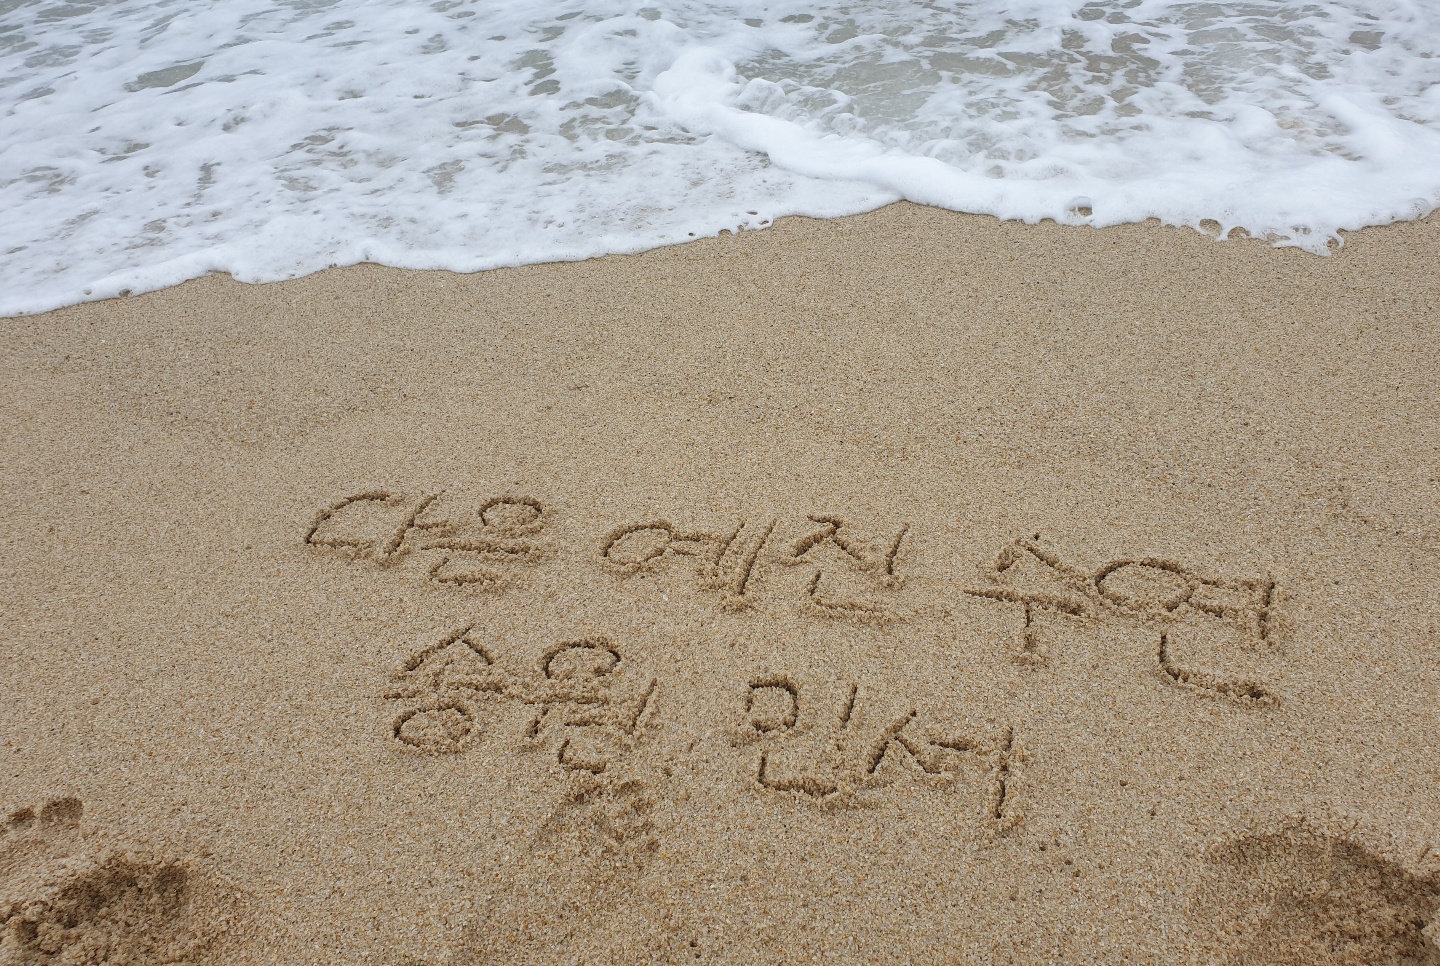 다은 예진 수연
송원 민서